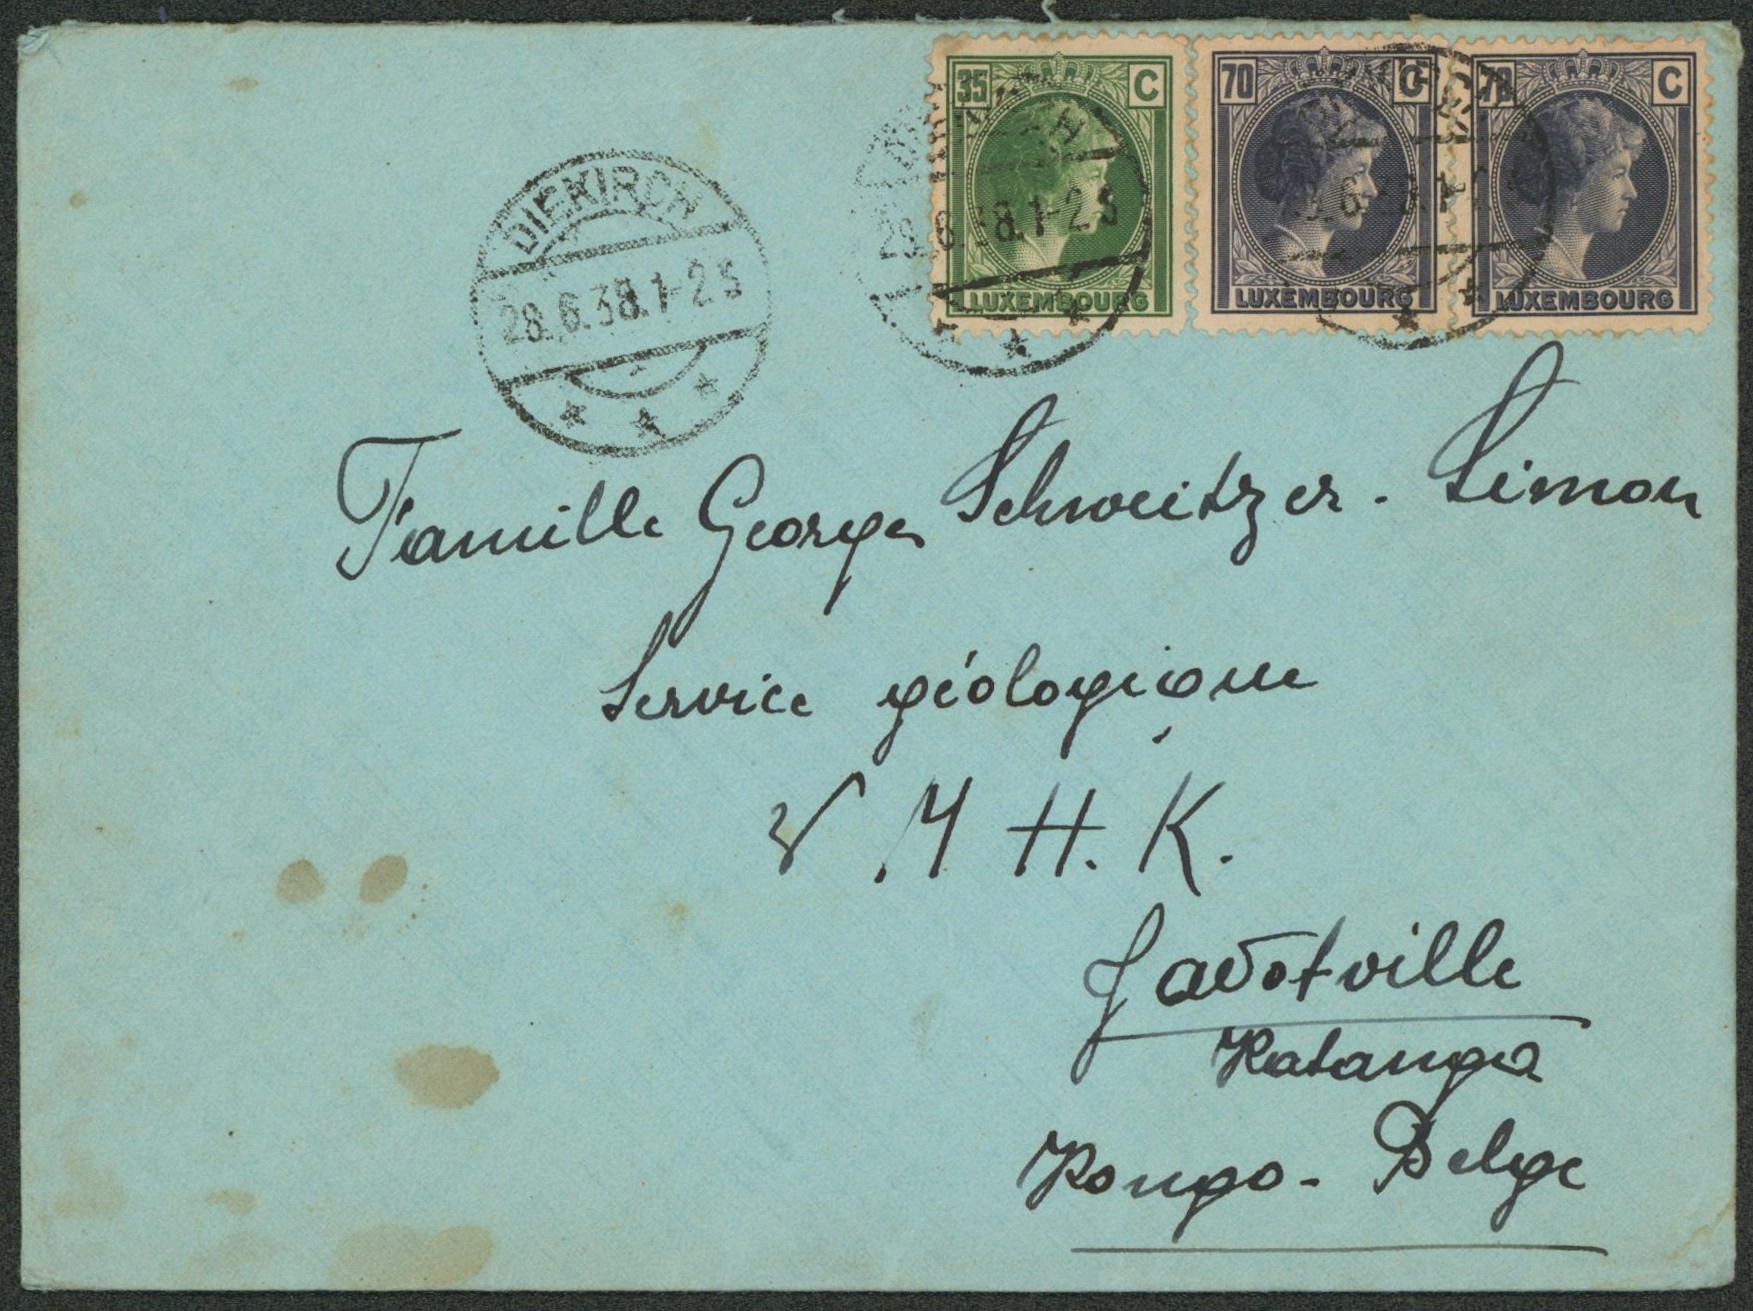 35 C
70 C
70 C
LUXEMBOURG
LUXEMBOURG
LUXEMBOURG
DIEKIRCH
28.6.38.1-2 S
28.6.38.1-2 S
Famille Georges Schweitzer - Simon
Service géologique
M H. K.
Jadotville
Katanga
Kongo - Belge